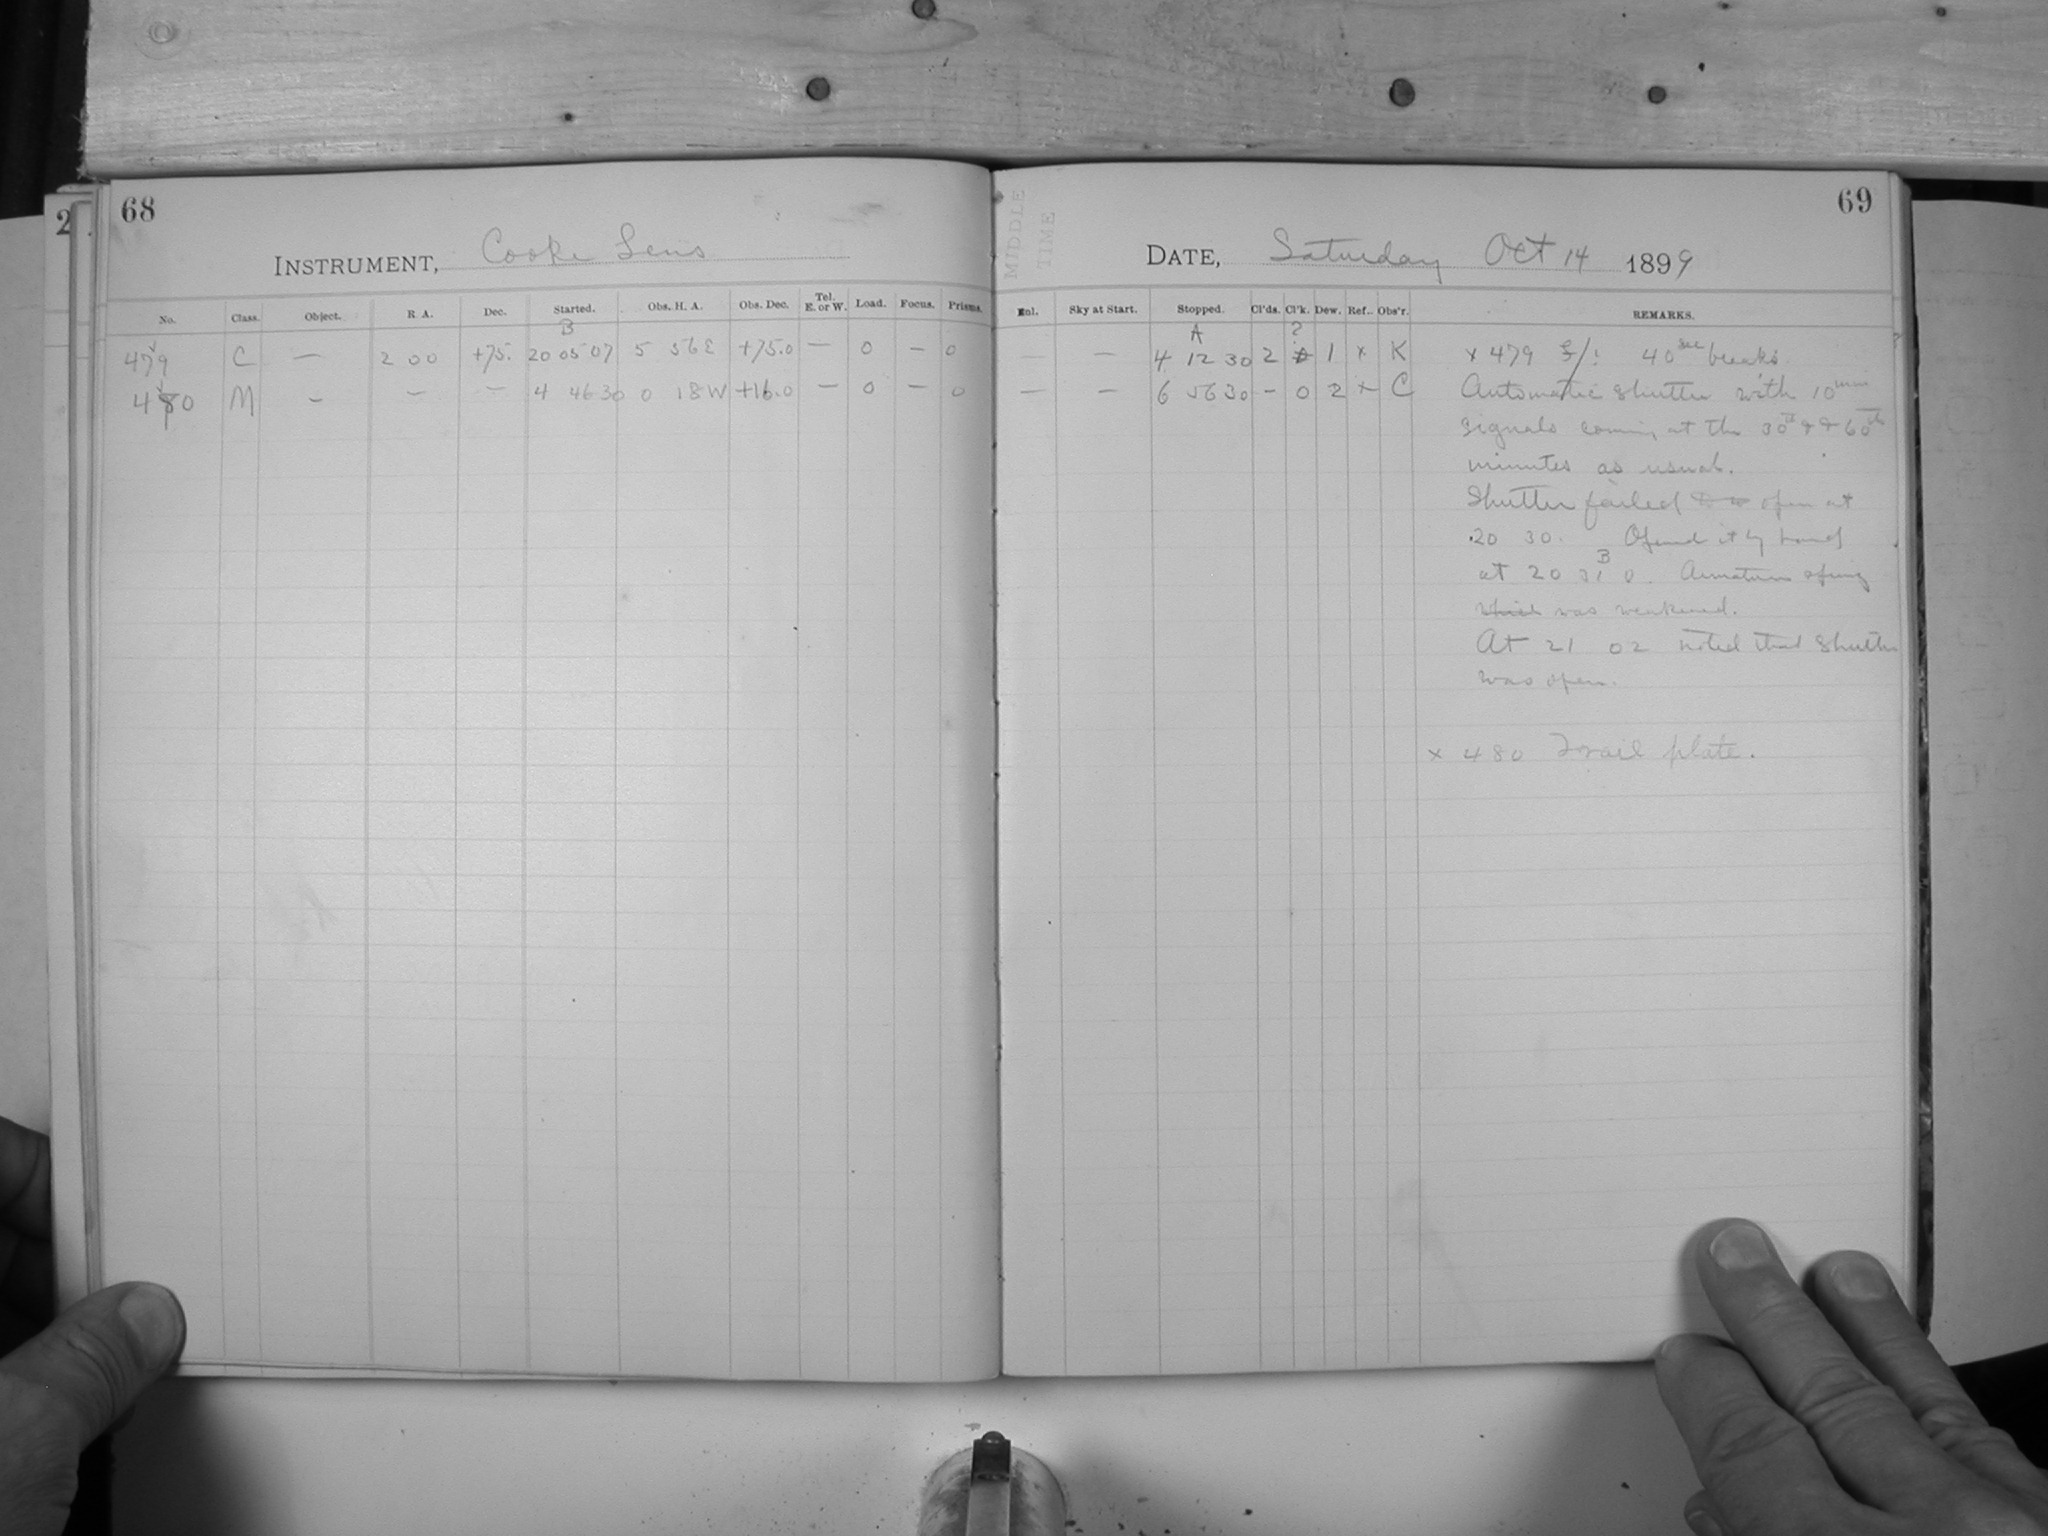 68
INSTRUMENT, Cooke Lens
No. Class. Object. R. A. Dec. Started. Obs. H. A. Obs. Dec. Tel. E. or W. Load. Focus. Prisms.
B
479 C — 2 00 +75. 20 05 07 5 56 E +75.0 — 0 — 0
480 M — — — 4 46 30 0 18 W +16.0 — 0 — 0
2
MIDDLE
TIME
69
DATE, Saturday Oct 14 1899
Enl. Sky at Start. Stopped. Cl'ds. Cl'k. Dew. Ref. Obs'r. REMARKS.
A ?
— — 4 12 30 2 1 x K x 479 40 sec breaks.
— — 6 56 30 — 0 2 x C Automatic shutter with 10 min
signals coming at the 30th & 60th
minutes as usual.
Shutter failed to open at
20 30. Opened it by hand
B
at 20 31 0. Armature spring
which was weakened.
At 21 02 noted that shutter
was open.
x 480 Trail plate.